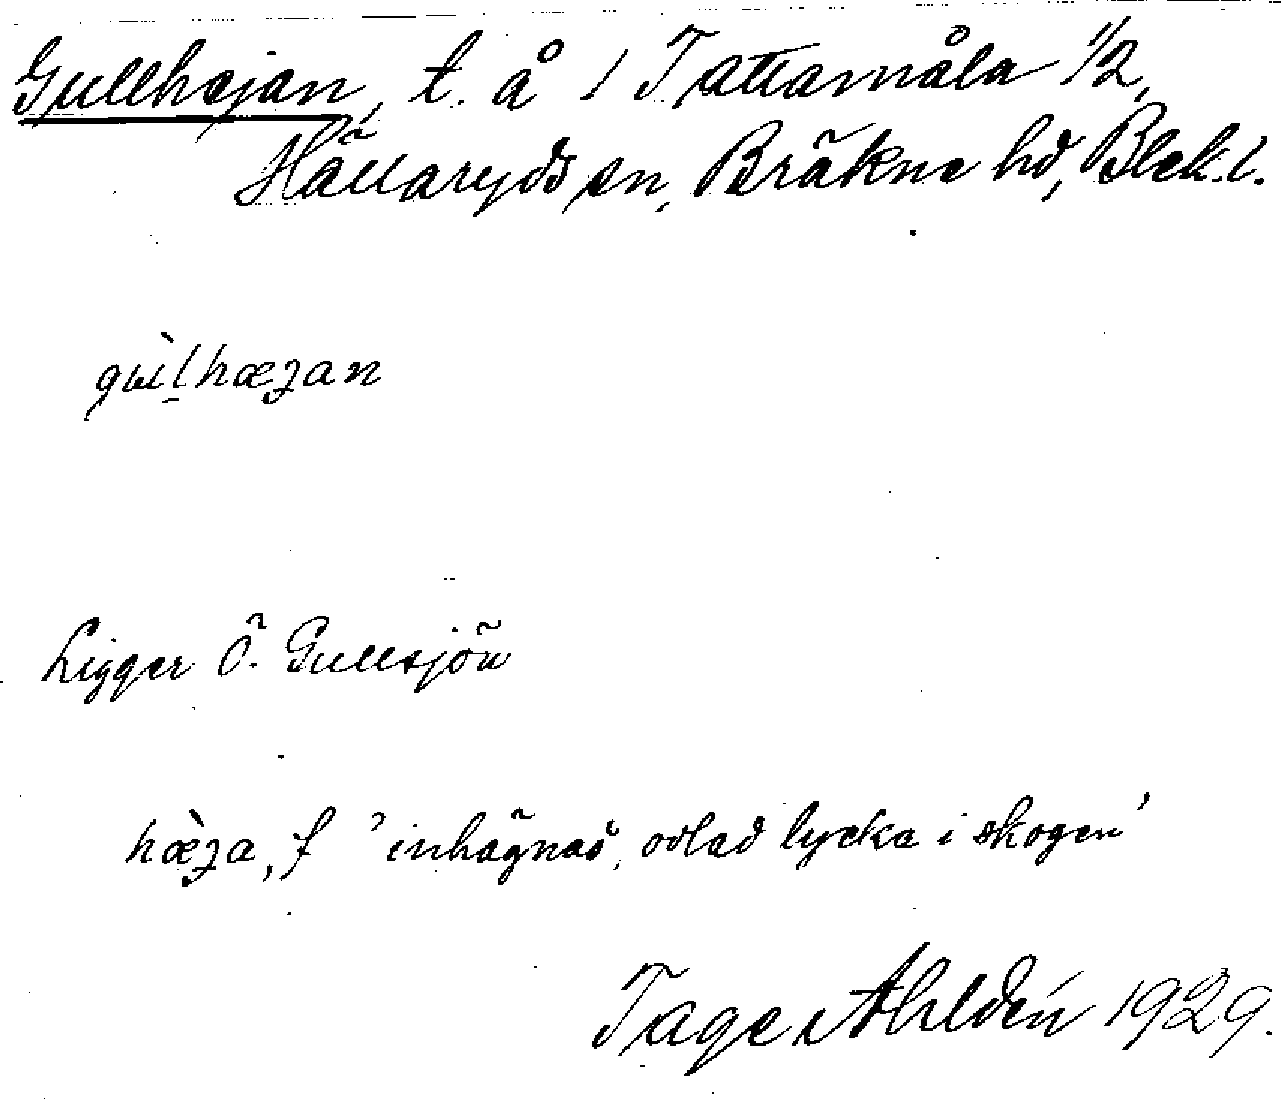 Gullhejan, t. å 1 Tattamåla 1/2,
Hällaryds sn, Bräkne hd, Blek. l.
gùl̠hæȝan
Ligger Ö. Gullsjön
hæ̀ȝa, f 'inhägnad, odlad lycka i skogen'
Tage Ahldén 1929.